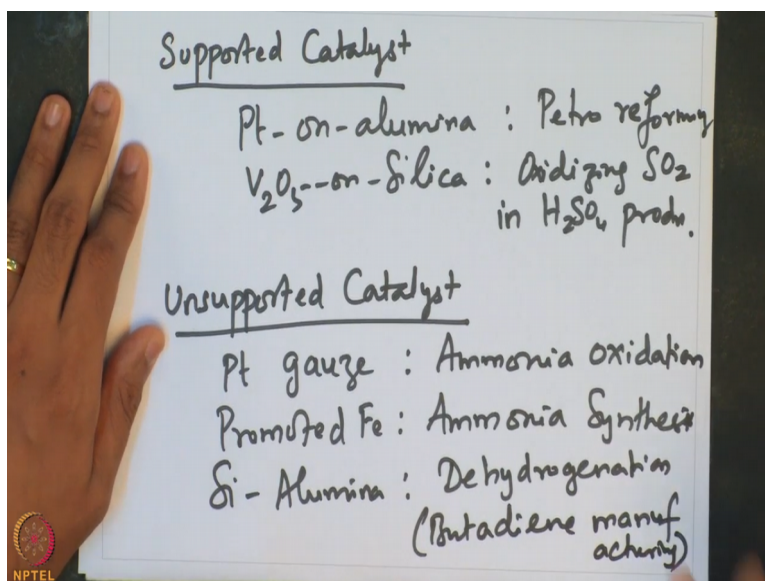 Supported Catalyst
Pt-on-alumina : Petro reforming
V₂O₅--on-Silica : Oxidizing SO₂
in H₂SO₄ prodn.
Unsupported Catalyst
Pt gauze : Ammonia oxidation
Promoted Fe : Ammonia Synthesis
Si-Alumina : Dehydrogenation
(Butadiene manuf
acturing)
NPTEL